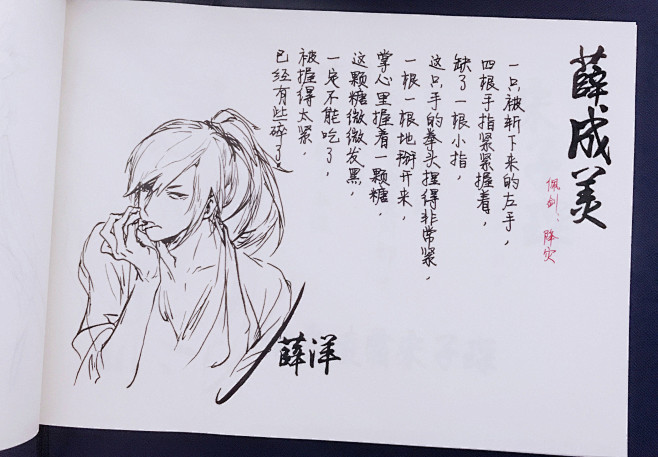 薛成美
佩剑：降灾
一只被斩下来的左手，
四根手指紧紧握着，
缺了一根小指，
这只手的拳头捏得非常紧，
一根一根地掰开来，
掌心里握着一颗糖，
这颗糖微微发黑，
一定不能吃了，
被握得太紧，
已经有些碎了。
薛洋